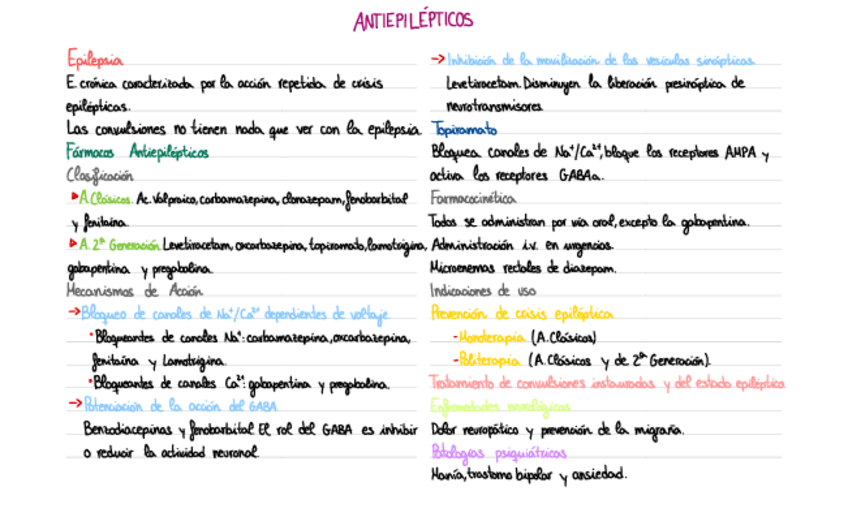 ANTIEPILÉPTICOS
Epilepsia
E. crónica caracterizada por la acción repetida de crisis
epilépticas.
Las convulsiones no tienen nada que ver con la epilepsia.
Fármacos Antiepilépticos
Clasificación
A. Clásicos. Ac. Valproico, carbamazepina, clonazepam, fenobarbital
y fenitoína.
A. 2ª Generación. Levetiracetam, oxcarbazepina, topiramato, lamotrigina,
gabapentina y pregabalina.
Mecanismos de Acción
→Bloqueo de canales de Na⁺/Ca²⁺ dependientes de voltaje.
•Bloqueantes de canales Na⁺: carbamazepina, oxcarbazepina,
fenitoína y Lamotrigina.
•Bloqueantes de canales Ca²⁺: gabapentina y pregabalina.
→Potenciación de la acción del GABA.
Benzodiacepinas y fenobarbital. El rol del GABA es inhibir
o reducir la actividad neuronal.
→Inhibición de la movilización de las vesículas sinápticas.
Levetiracetam. Disminuyen la liberación presináptica de
neurotransmisores.
Topiramato
Bloquea canales de Na⁺/Ca²⁺, bloque los receptores AMPA y
activa los receptores GABAa.
Farmacocinética
Todos se administran por vía oral, excepto la gabapentina.
Administración i.v. en urgencias.
Microenemas rectales de diazepam.
Indicaciones de uso
Prevención de crisis epiléptica
-Monoterapia (A. Clásicos)
-Politerapia (A. Clásicos y de 2ª Generación).
Tratamiento de convulsiones instauradas y del estado epiléptico
Enfermedades neurológicas
Dolor neuropático y prevención de la migraña.
Patologías psiquiátricas
Manía, trastorno bipolar y ansiedad.